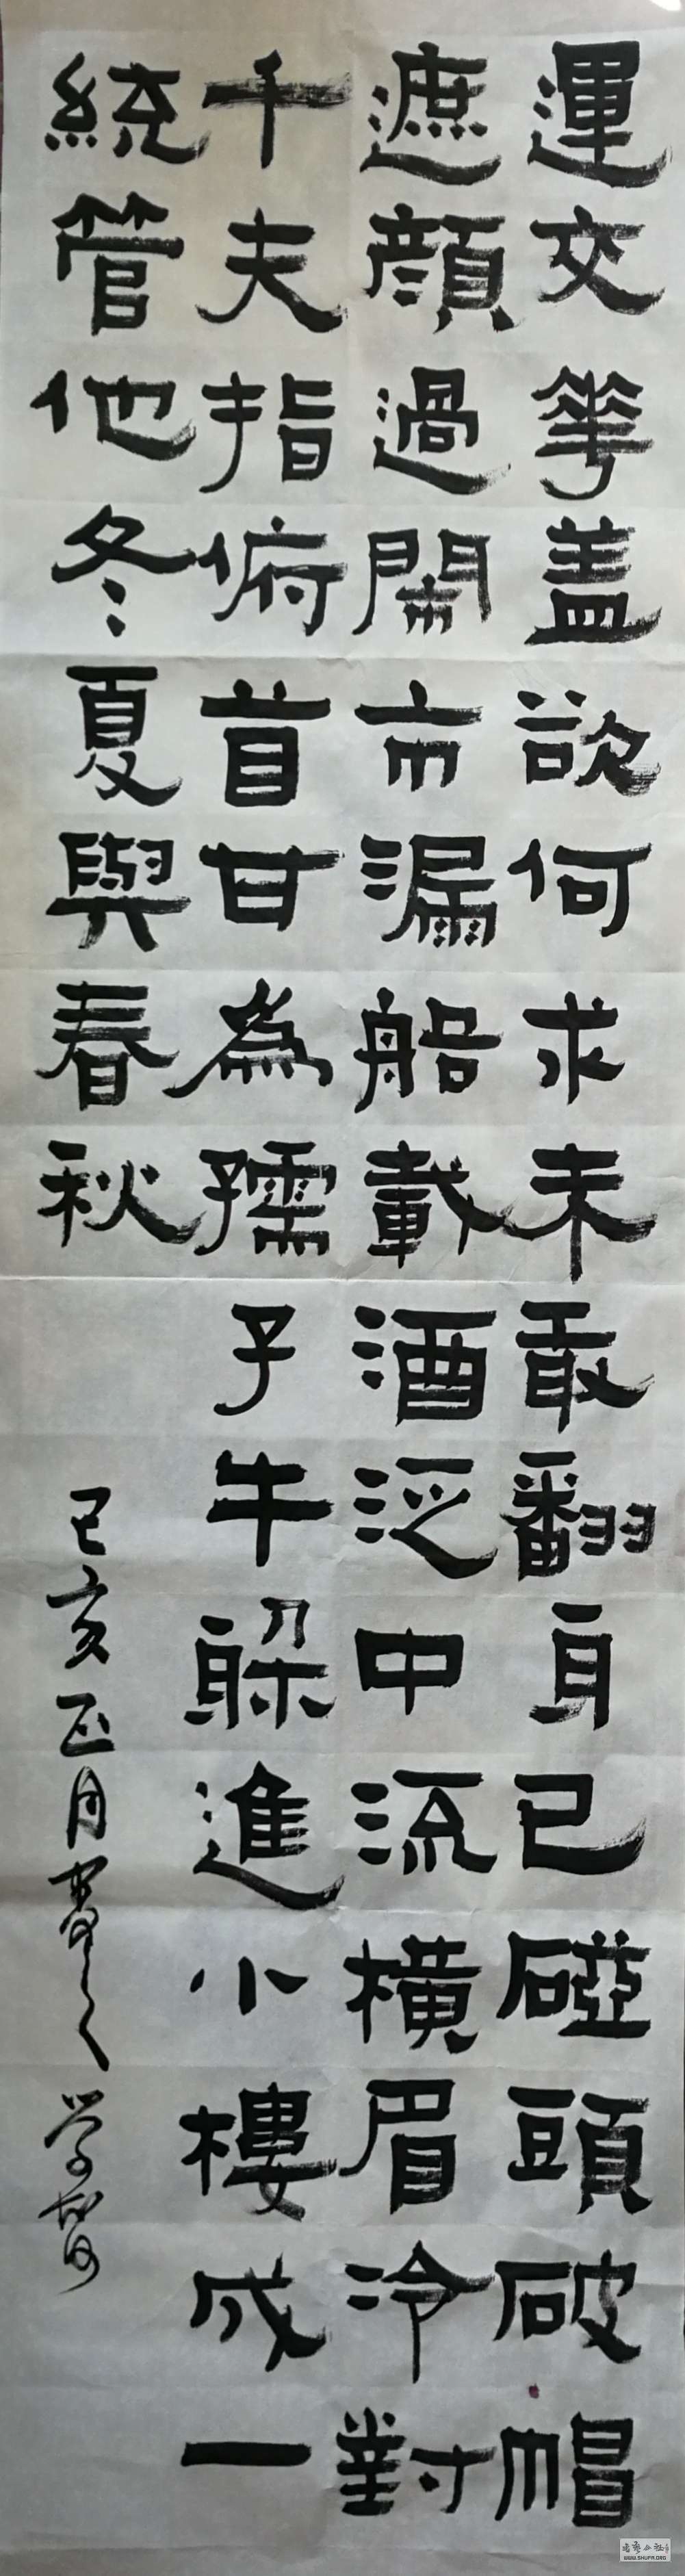 運交華盖欲何求未敢翻身已碰頭破帽
遮顔過閙市漏船載酒泛中流橫眉冷對
千夫指俯首甘為孺子牛躲進小樓成一
統管他冬夏與春秋
己亥正月書之
WWW.SHUFA.ORG